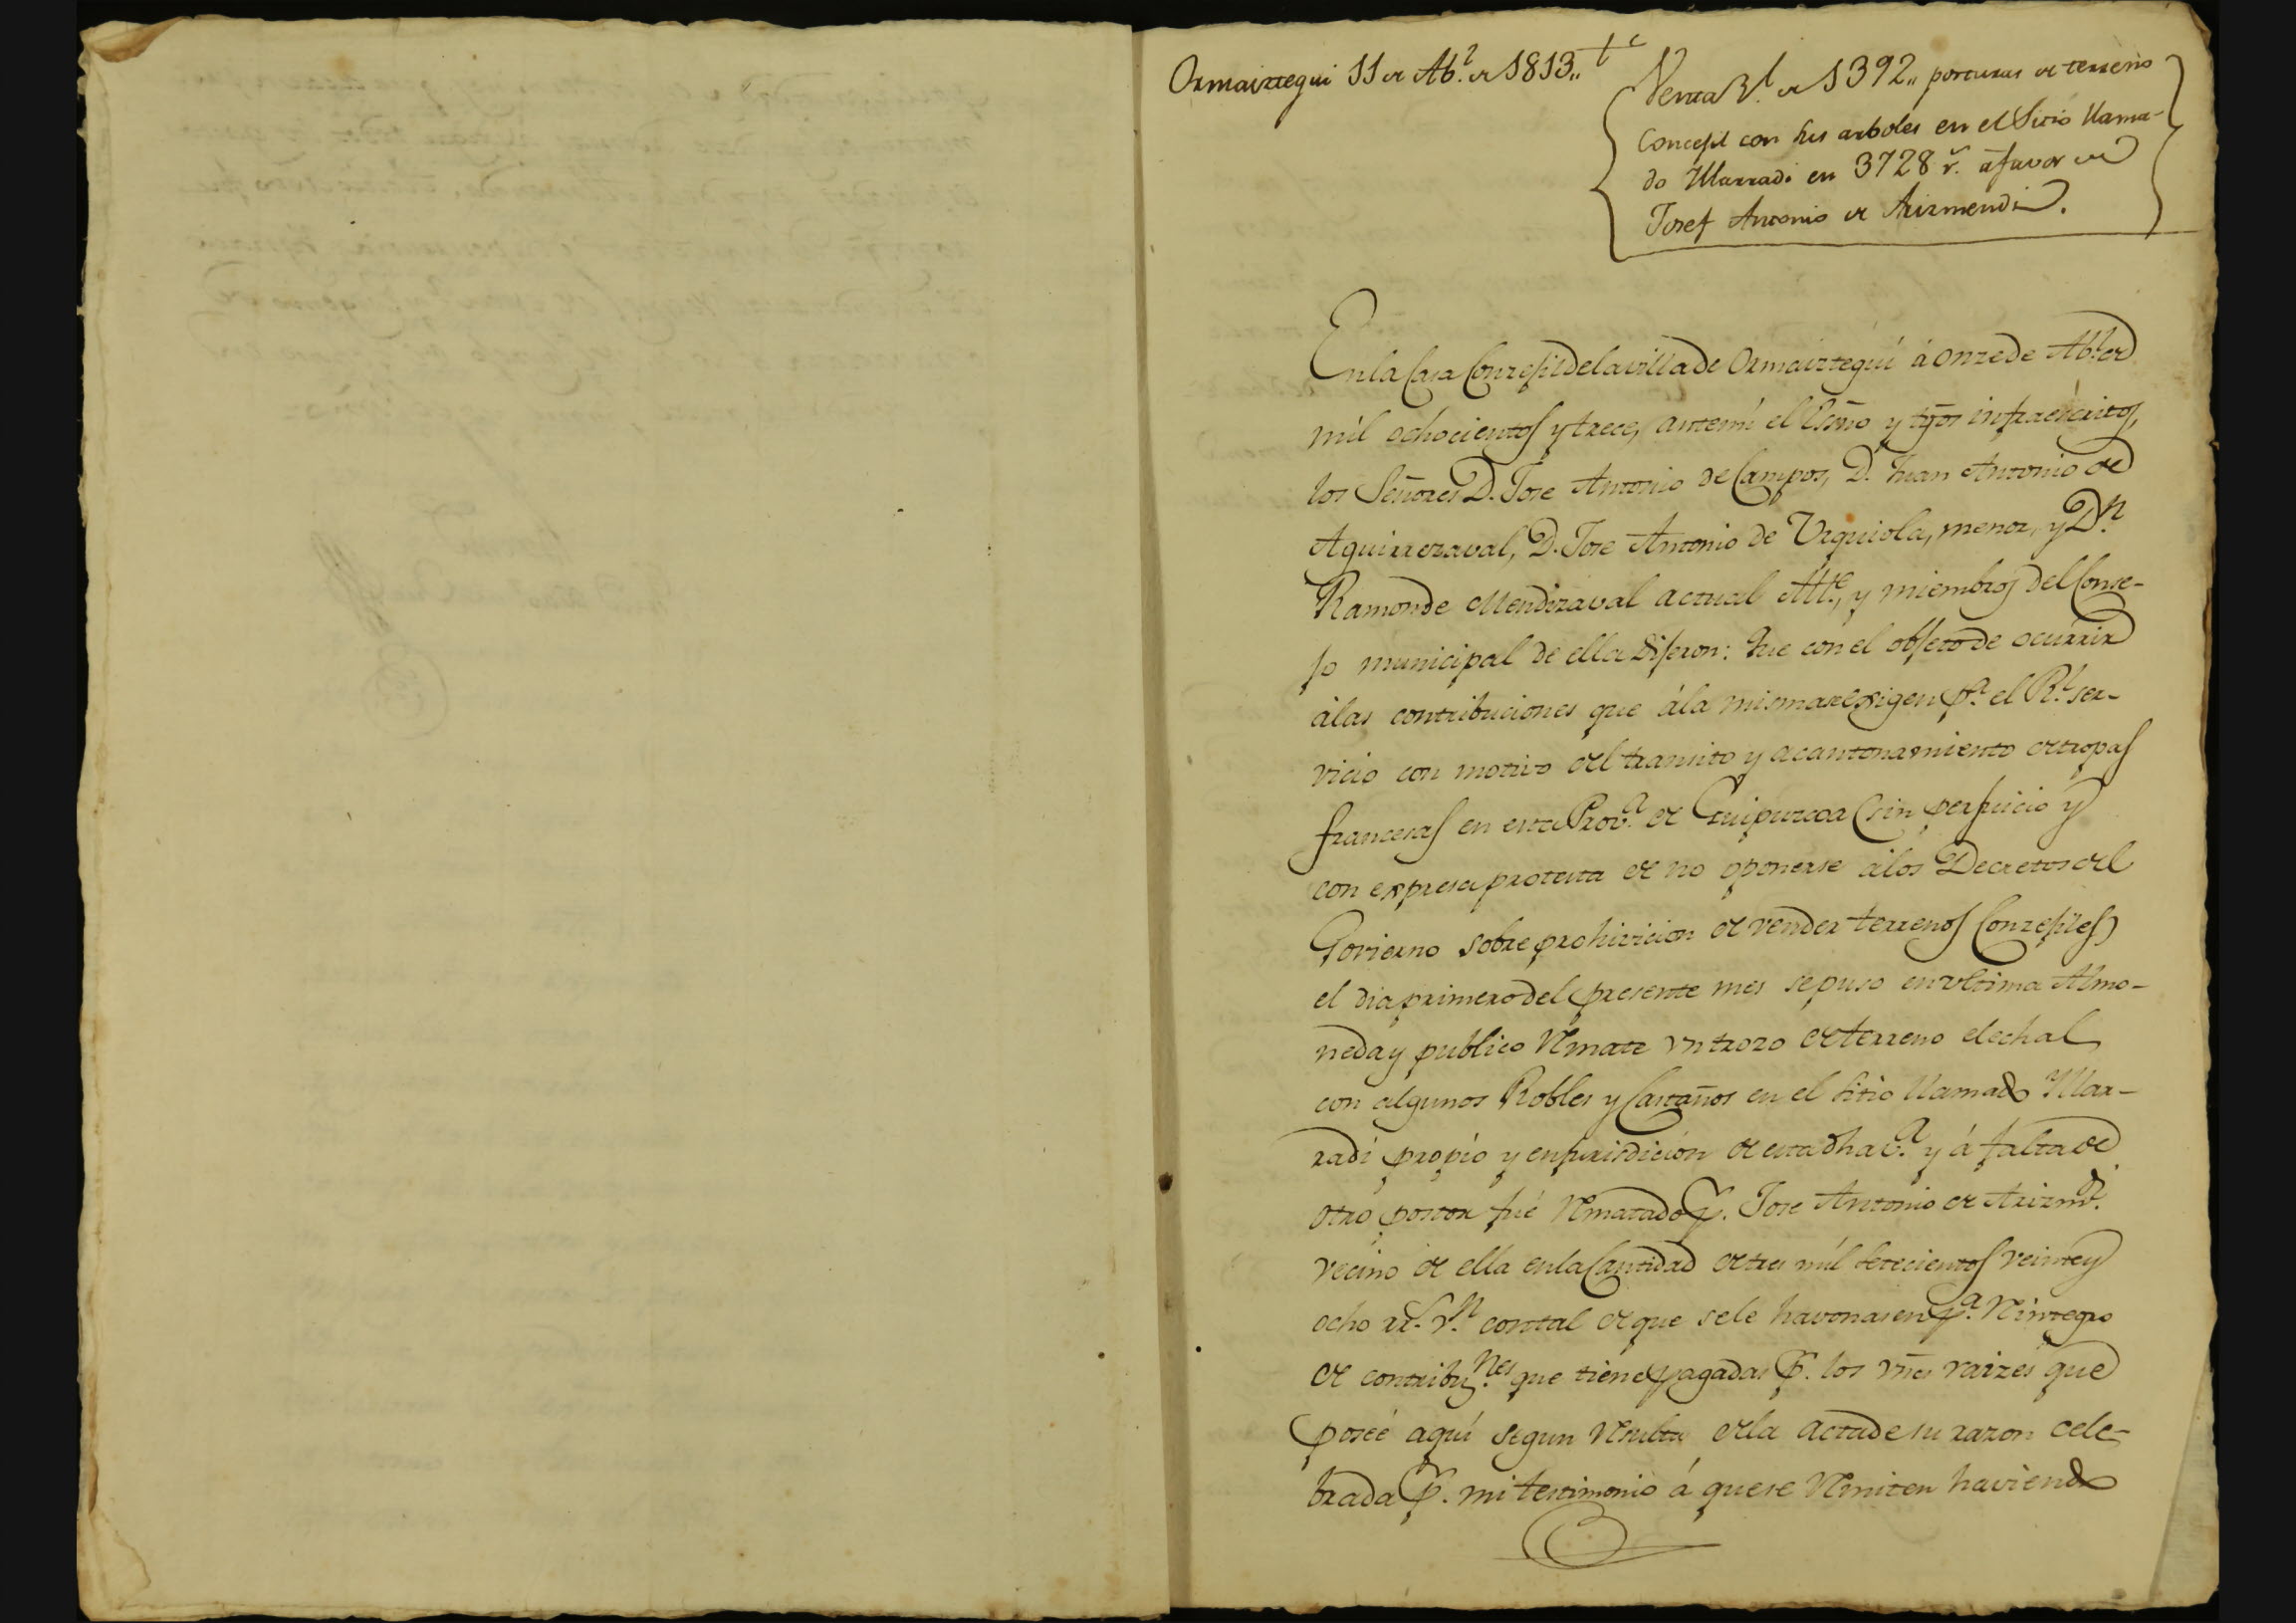 Ormaiztegui 11 de Ab.l de 1813,,
Venta Rl. de 1392,, posturas de terreno
Concejil con sus arboles en el Sitio llama-
do Yllarradi en 3728 rs. á favor de
Josef Antonio de Arizmendi.
En la Casa Conzejil de la villa de Ormaiztegui á onze de Ab.l de
mil ochocientos y trece, antemi el Esño y tgōs infraescritos,
los Señores D. Jose Antonio de Campos, D. Juan Antonio de
Aguirrezaval, D. Jose Antonio de Urquiola, menor, y Dn.
Ramon de Mendizaval actual Alte, y miembros del Conse-
jo municipal de ella Dijeron: Que con el objeto de ocurrir
álas contribuciones que ála misma se exigen pa. el Rl. ser-
vicio con motivo del transito y acantonamiento de tropas
francesas en esta Prova. de Guipuzcoa (sin perjuicio y
con expresa protesta de no oponerse álos Decretos del
Govierno sobre prohivicion de vender terrenos Conzejiles)
el dia primero del presente mes se puso en ultima Almo-
neda y publico Remate un trozo de terreno elechal
con algunos Robles y Castaños en el sitio llamado Yllar-
radi propio y en jurisdicion de esta dha va. y á falta de
otro postor fué Rematado p. Jose Antonio de Arizmdi.
vecino de ella en la Cantidad de tres mil setecientos veinte y
ocho rs. vn. con tal de que se le havonasen pa. Reintegro
de contribunes. que tiene pagadas p. los vnēs raizes que
posée aquí segun Resulta de la acta de su razon cele-
brada p. mi testimonio á que se Remiten haviendo